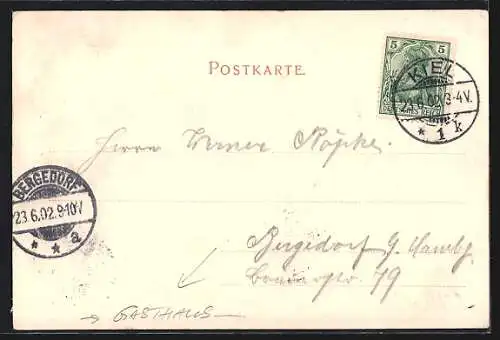 POSTKARTE
5
5
DEUTSCHES REICH
KIEL
23.6.02.3-4V.
* 1 k
Herrn Werner Köpke
BERGEDORF
23.6.02.9-10V
* * a
Bergedorf b. Hambg
79
→ GASTHAUS